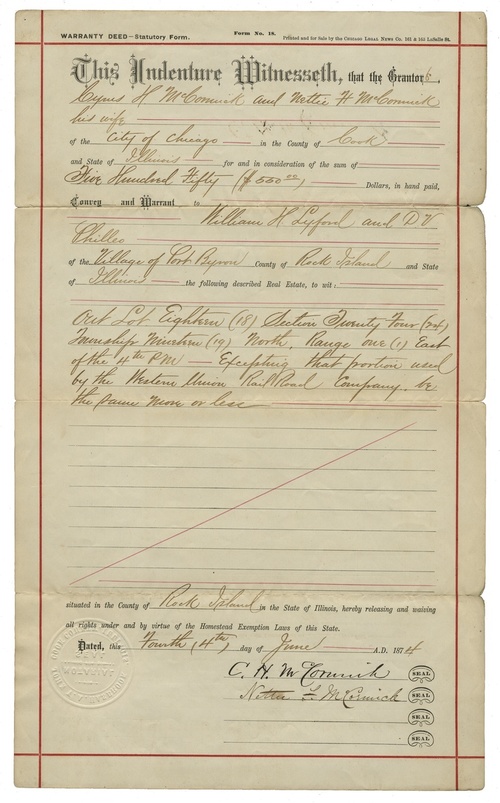 Form No. 18.
WARRANTY DEED—Statutory Form.
Printed and for Sale by the CHICAGO LEGAL NEWS Co.
This Indenture Witnesseth, that the Grantors
Cyrus H McCormick and Nettie F McCormick
his wife
of the City of Chicago in the County of Cook
and State of Illinois for and in consideration of the sum of
Five Hundred Fifty ($550 00) Dollars, in hand paid,
Convey and Warrant to William H Lyford and D V
Philleo
of the Village of Port Byron County of Rock Island and State
of Illinois the following described Real Estate, to wit:
Out Lot Eighteen (18) Section Twenty Four (24)
Township Nineteen (19) North, Range one (1) East
of the 4th P.M — Excepting that portion used
by the Western Union Rail Road Company. be
the same more or less
situated in the County of Rock Island in the State of Illinois, hereby releasing and waiving
all rights under and by virtue of the Homestead Exemption Laws of this State.
Dated, this Fourth (4th) day of June A.D. 1874
C. H. McCormick SEAL
Nettie F. McCormick SEAL
SEAL
SEAL